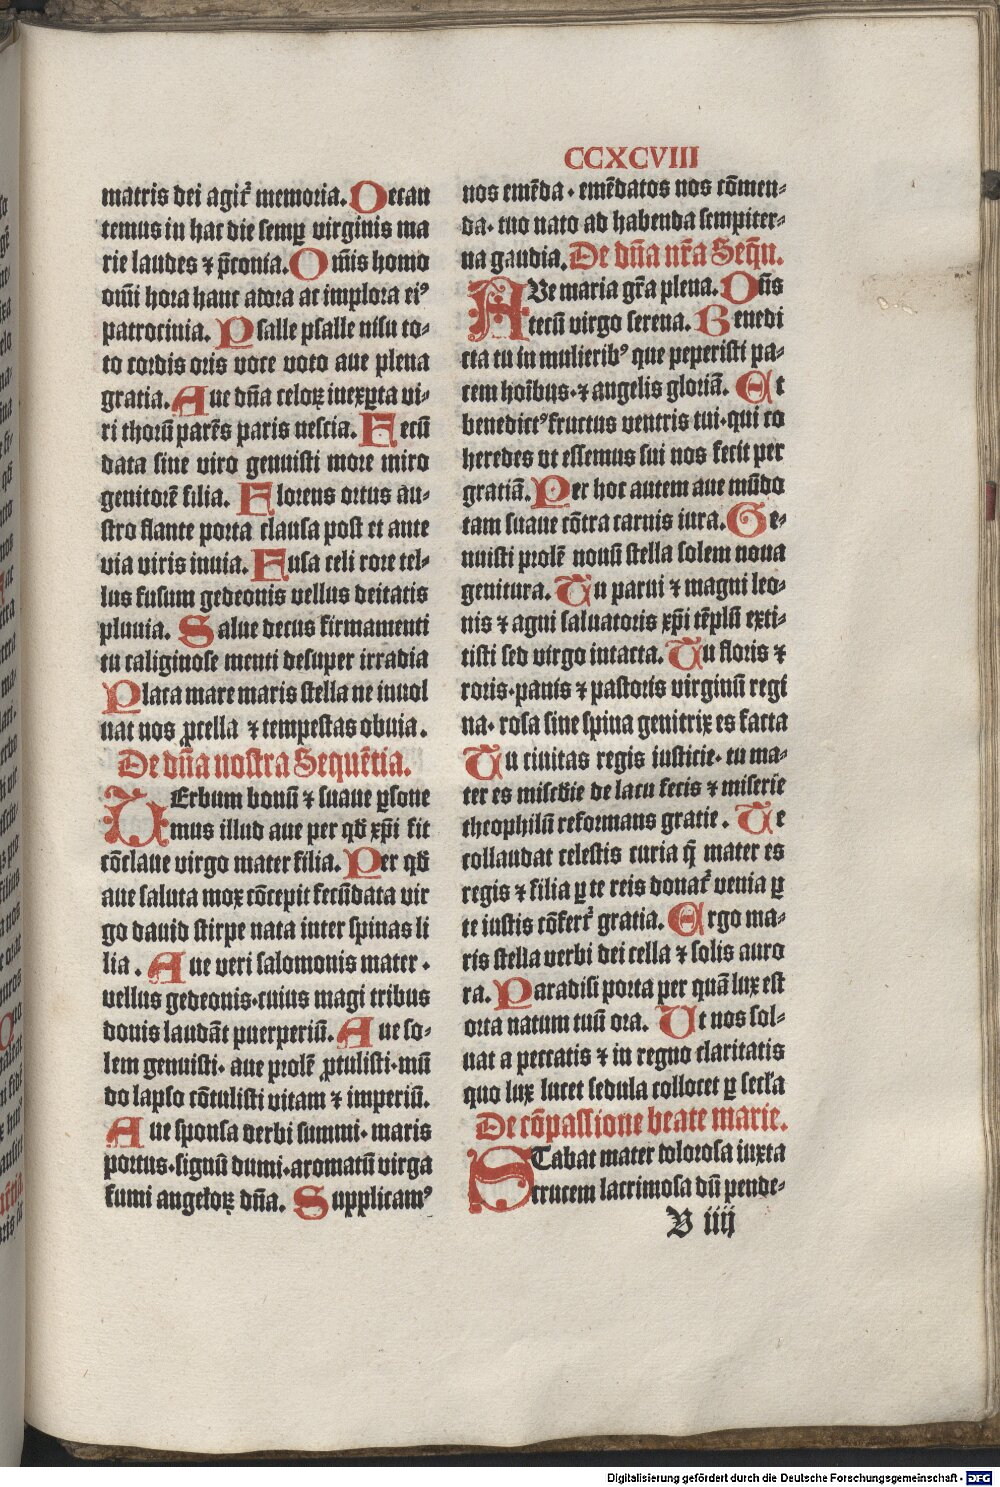 CCXCVIII
matris dei agit᷑ memoria. Decan
temus in hac die semꝑ virginis ma
rie laudes ⁊ p̄conia. Om̄is homo
om̄i hora hanc adora ac implora ei⁹
patrocinia. Psalle psalle nisu to-
to cordis oris voce voto aue plena
gratia. Aue dn̄a celoꝝ inexꝑta vi-
ri thorū parēs paris nescia. Fecū
data sine viro genuisti more miro
genitorē filia. Florens ortus au-
stro flante porta clausa post et ante
via viris inuia. Fusa celi rore tel-
lus fusum gedeonis vellus deitatis
pluuia. Salue decus firmamenti
tu caliginose menti desuper irradia
Placa mare maris stella ne inuol
uat nos ꝓcella ⁊ tempestas obuia.
De dn̄a nostra Sequētia.
VErbum bonū ⁊ suaue ꝑsone
mus illud aue per qd̄ xp̄i fit
cōclaue virgo mater filia. Per qd̄
aue saluta mox cōcepit fecūdata vir
go dauid stirpe nata inter spinas li
lia. Aue veri salomonis mater.
vellus gedeonis·cuius magi tribus
donis laudāt puerperiū. Aue so-
lem genuisti· aue prolē ꝓtulisti·mū
do lapso cōtulisti vitam ⁊ imperiū.
Aue sponsa verbi summi· maris
portus·signū dumi·aromatū virga
fumi angeloꝝ dn̄a. Supplicam⁹
nos emēda · emēdatos nos cōmen-
da· tuo nato ad habenda sempiter-
na gaudia. De dn̄a nr̄a Seqū.
AVe maria gr̄a plena. Dn̄s
tecū virgo serena. Benedi
cta tu in mulierib⁹ que peperisti pa-
cem hoībus·⁊ angelis gloriā. Et
benedict⁹ fructus ventris tui·qui co
heredes vt essemus sui nos fecit per
gratiā. Per hoc autem aue mūdo
tam suaue cōtra carnis iura. Ge-
nuisti prolē nouū stella solem noua
genitura. Tu parui ⁊ magni leo-
nis ⁊ agni saluatoris xp̄i tēplū exti-
tisti sed virgo intacta. Tu floris ⁊
roris·panis ⁊ pastoris virginū regi
na· rosa sine spina genitrix es facta
Tu ciuitas regis iusticie· tu ma-
ter es mīscd̄ie de lacu fecis ⁊ miserie
theophilū reformans gratie. Te
collaudat celestis curia q̄ mater es
regis ⁊ filia ꝑ te reis donat᷑ venia ꝑ
te iustis cōfert᷑ gratia. Ergo ma-
ris stella verbi dei cella ⁊ solis auro
ra. Paradisi porta per quā lux est
orta natum tuū ora. Vt nos sol-
uat a peccatis ⁊ in regno claritatis
quo lux lucet sedula collocet ꝑ secl̄a
De cōpassione beate marie.
STabat mater dolorosa iuxta
crucem lacrimosa dū pende-
B iiij
Digitalisierung gefördert durch die Deutsche Forschungsgemeinschaft - DFG